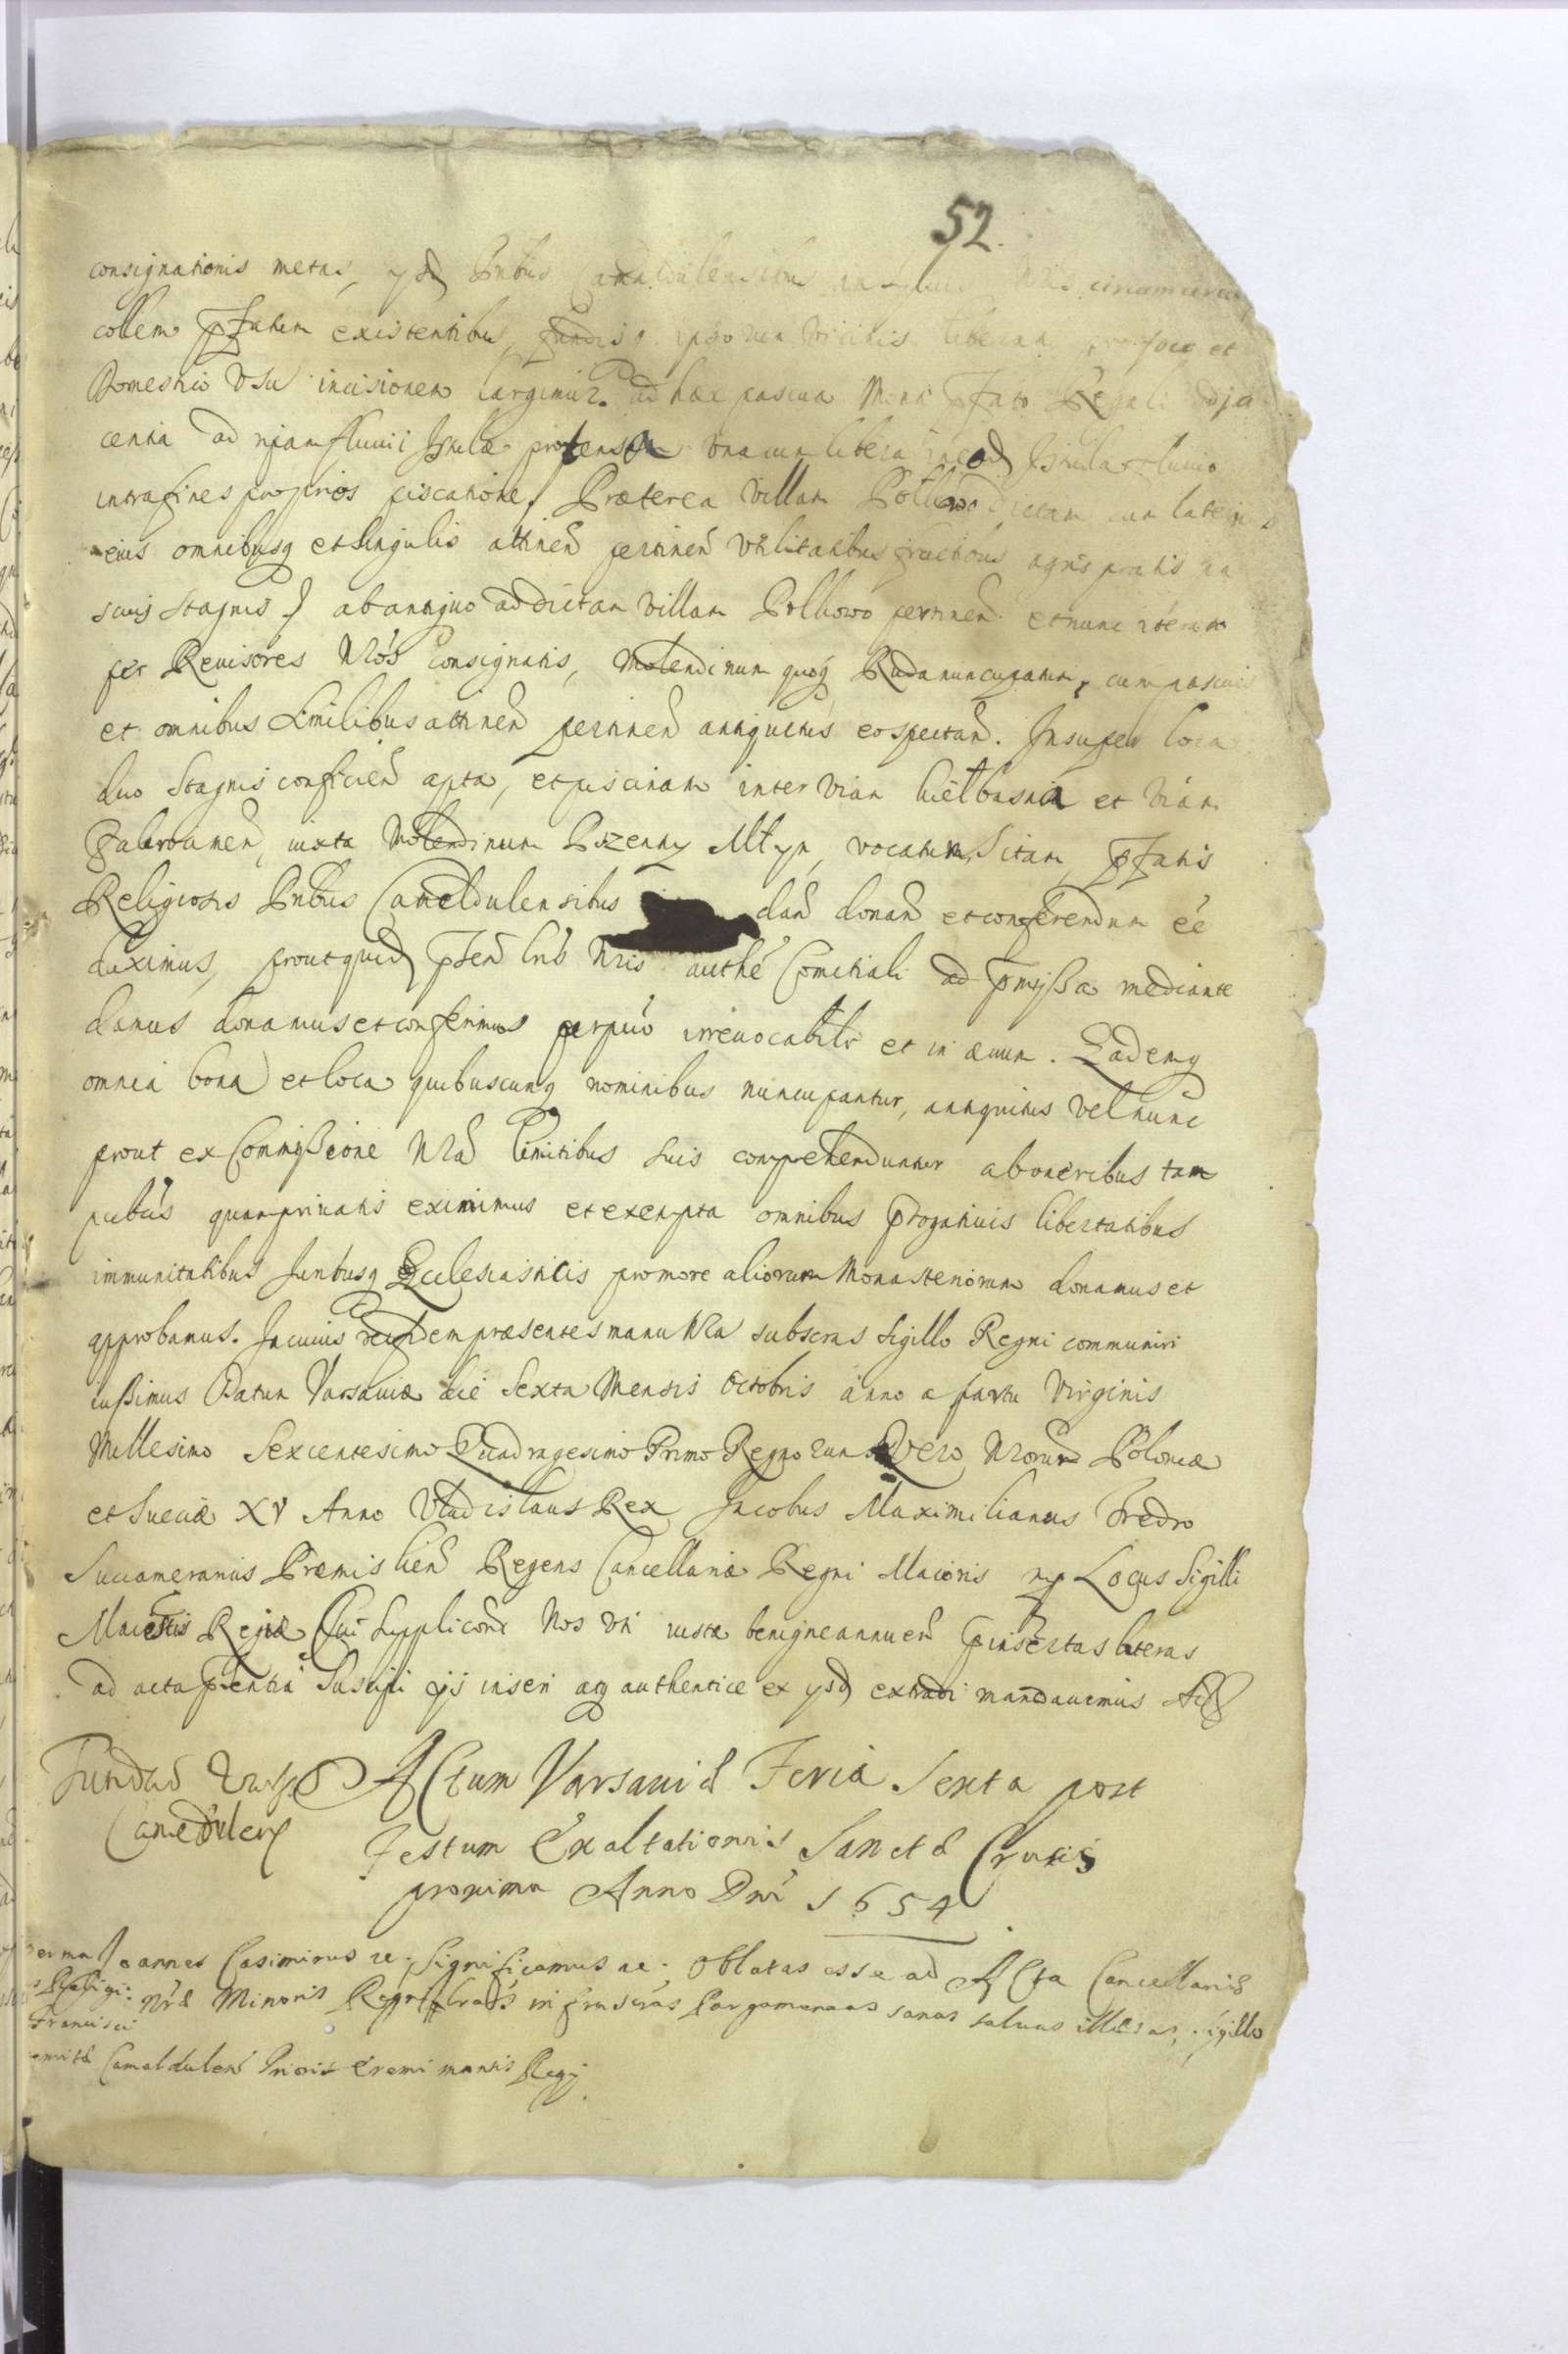 52.
consignationis metas, ysd Pribus Camaldulensibus circumcirca
collem pfatum existentibus, fundisq vicinis liberam pro foco et
domestico usu incisionem largimur. ad hæc pascua Monti pfato Regali adja
centia ad ripam fluvii Istulæ protensa una cum libera in eod Istulæ fluvio
intra fines proprios piscatione. Præterea villam Polkowo dictam cum
eius omnibusq et singulis attinen pertinen utilitatibus fructibus agris pratis
scuis stagnis ab antiquo ad dictam villam Polkowo pertinen et nunc iterum
per Revisores Nros consignatis, Molendinum quoq Ruda nuncupatum, cum pascuis
et omnibus similibus attinen pertinen antiquitus eo spectan. Insuper loca
duo stagnis conficien apta, et piscinam inter viam et viam
iuxta Molendinum Pszenny Młyn, vocatum, sitam, pfatis
Religiosis Pribus Cameldulensibus dan donan et conferendum eé
duximus, prout quid pten lris Nris authé Comitiali ad pmissa mediante
damus donamus et conferimus perpuó irrevocabiltr et in ævum. Eademq
omnia bona et loca quibuscunq nominibus nuncupantur, antiquitus vel nunc
prout ex Commissione Nra limitibus suis comprehenduntur ab oneribus tam
pubcis quam privatis eximimus et exempta omnibus progativis libertatibus
immunitatibus Juribusq Ecclesiasticis pro more aliorum Monasteriorum donamus et
approbamus. In cuius rei fidem præsentes manu Nra subscras sigillo Regni communiri
iussimus Datum Varsaviæ die sexta Mensis Octobris anno a partu Virginis
Millesimo Sexcentesimo Quadragesimo Primo Regnorum vero Nrorum Poloniæ
et Sueciæ XV Anno Vladislaus Rex Jacobus Maximilianus Fredro
Succamerarius Præmislien Regens Cancellariæ Regni Maioris mp Locus Sigilli
Maiestis Regiæ Cui suppliconi Nos uti iustæ benigne annuen pinsertas literas
ad acta psentia suscipi ijs inseri atq authentice ex ysd extradi mandavimus Act
Fundaó
Camedulen
ACtum Varsaviæ Feria Sexta post
Festum Exaltationis Sanctæ Crucis
proxima Anno Dni 1654
Joannes Casimirus re. Significamus re. Oblatas esse ad ACta Cancellariæ
Religi: Nræ Minoris Regni lras infrascras Pargameneas sanas salvas illæsas, sigillo
Francisci
Camaldulen Prioris Eremi montis Regij